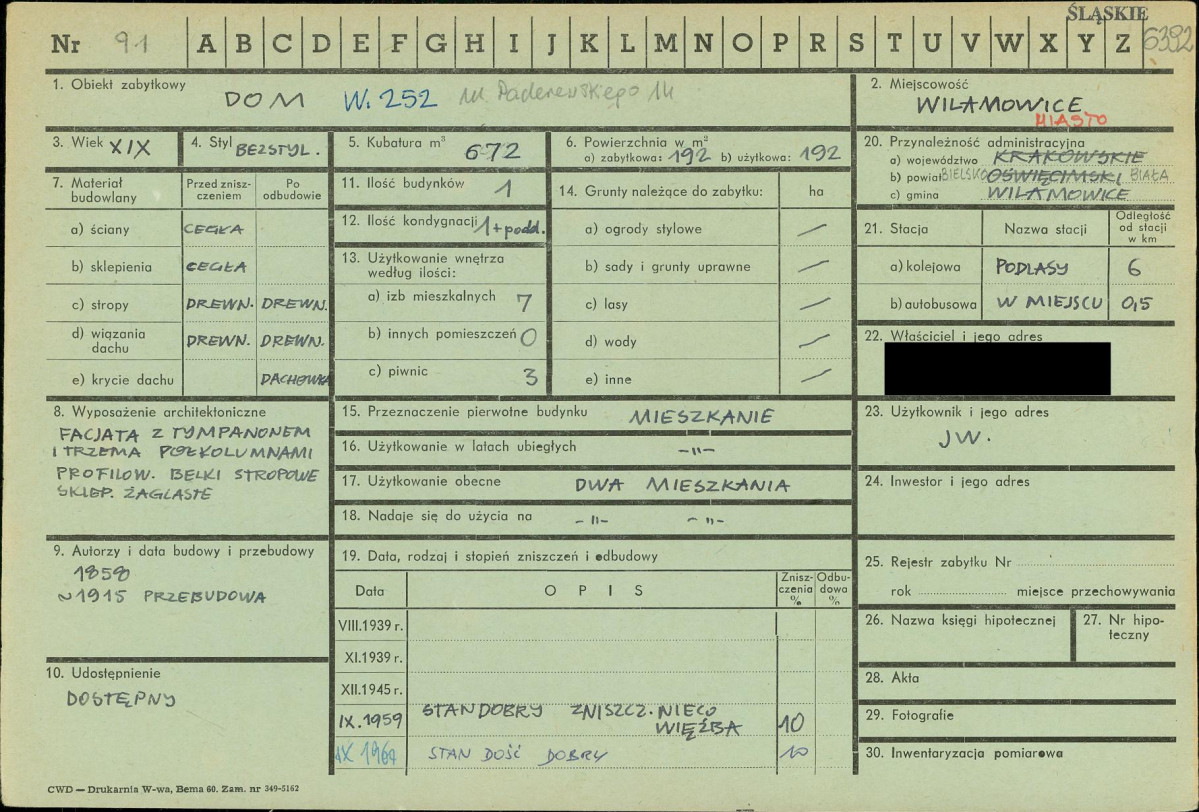 ŚLĄSKIE
Nr 91 A B C D E F G H I J K L M N O P R S T U V W X Y Z 6392
1. Obiekt zabytkowy
DOM W. 252 ul. Paderewskiego 14
2. Miejscowość
WILAMOWICE
MIASTO
3. Wiek XIX
4. Styl BEZSTYL.
5. Kubatura m³ 672
6. Powierzchnia w m²
a) zabytkowa: 192 b) użytkowa: 192
20. Przynależność administracyjna
a) województwo KRAKOWSKIE
b) powiat BIELSKO OŚWIĘCIMSKI BIAŁA
c) gmina WILAMOWICE
7. Materiał budowlany
Przed zniszczeniem
Po odbudowie
a) ściany CEGŁA
b) sklepienia CEGŁA
c) stropy DREWN. DREWN.
d) wiązania dachu DREWN. DREWN.
e) krycie dachu DACHÓWKA
11. Ilość budynków 1
12. Ilość kondygnacji 1 + podd.
13. Użytkowanie wnętrza
według ilości:
a) izb mieszkalnych 7
b) innych pomieszczeń 0
c) piwnic 3
14. Grunty należące do zabytku: ha
a) ogrody stylowe —
b) sady i grunty uprawne —
c) lasy —
d) wody —
e) inne —
21. Stacja Nazwa stacji Odległość od stacji w km
a) kolejowa PODLASY 6
b) autobusowa W MIEJSCU 0,5
22. Właściciel i jego adres
8. Wyposażenie architektoniczne
FACJATA Z TYMPANONEM
I TRZEMA PÓŁKOLUMNAMI
PROFILOW. BELKI STROPOWE
SKLEP. ŻAGLASTE
15. Przeznaczenie pierwotne budynku MIESZKANIE
16. Użytkowanie w latach ubiegłych -"-
17. Użytkowanie obecne DWA MIESZKANIA
18. Nadaje się do użycia na -"- -"-
23. Użytkownik i jego adres
JW.
24. Inwestor i jego adres
9. Autorzy i data budowy i przebudowy
1858
~1915 PRZEBUDOWA
19. Data, rodzaj i stopień zniszczeń i odbudowy
Data O P I S Zniszczenia % Odbudowa %
VIII.1939 r.
XI.1939 r.
XII.1945 r.
IX.1959 STAN DOBRY ZNISZCZ. NIECO
WIĘŹBA 10
IX 1964 STAN DOŚĆ DOBRY 10
25. Rejestr zabytku Nr
rok miejsce przechowywania
26. Nazwa księgi hipotecznej
27. Nr hipoteczny
10. Udostępnienie
DOSTĘPNY
28. Akta
29. Fotografie
30. Inwentaryzacja pomiarowa
CWD — Drukarnia W-wa, Bema 60. Zam. nr 349-5162